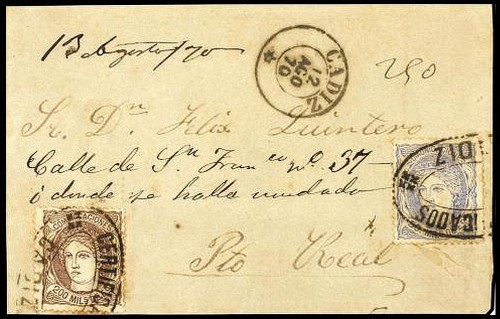 13 Agosto/70
CADIZ
12
AGO
70
290
Sr. Dn. Felix Quintero
Calle de Sn Franco no. 37
ó donde se halla mudado
Pto Real
COMUNICACIONES
200 MILS
CERTIFICADOS
CADIZ
CERTIFICADOS
CADIZ